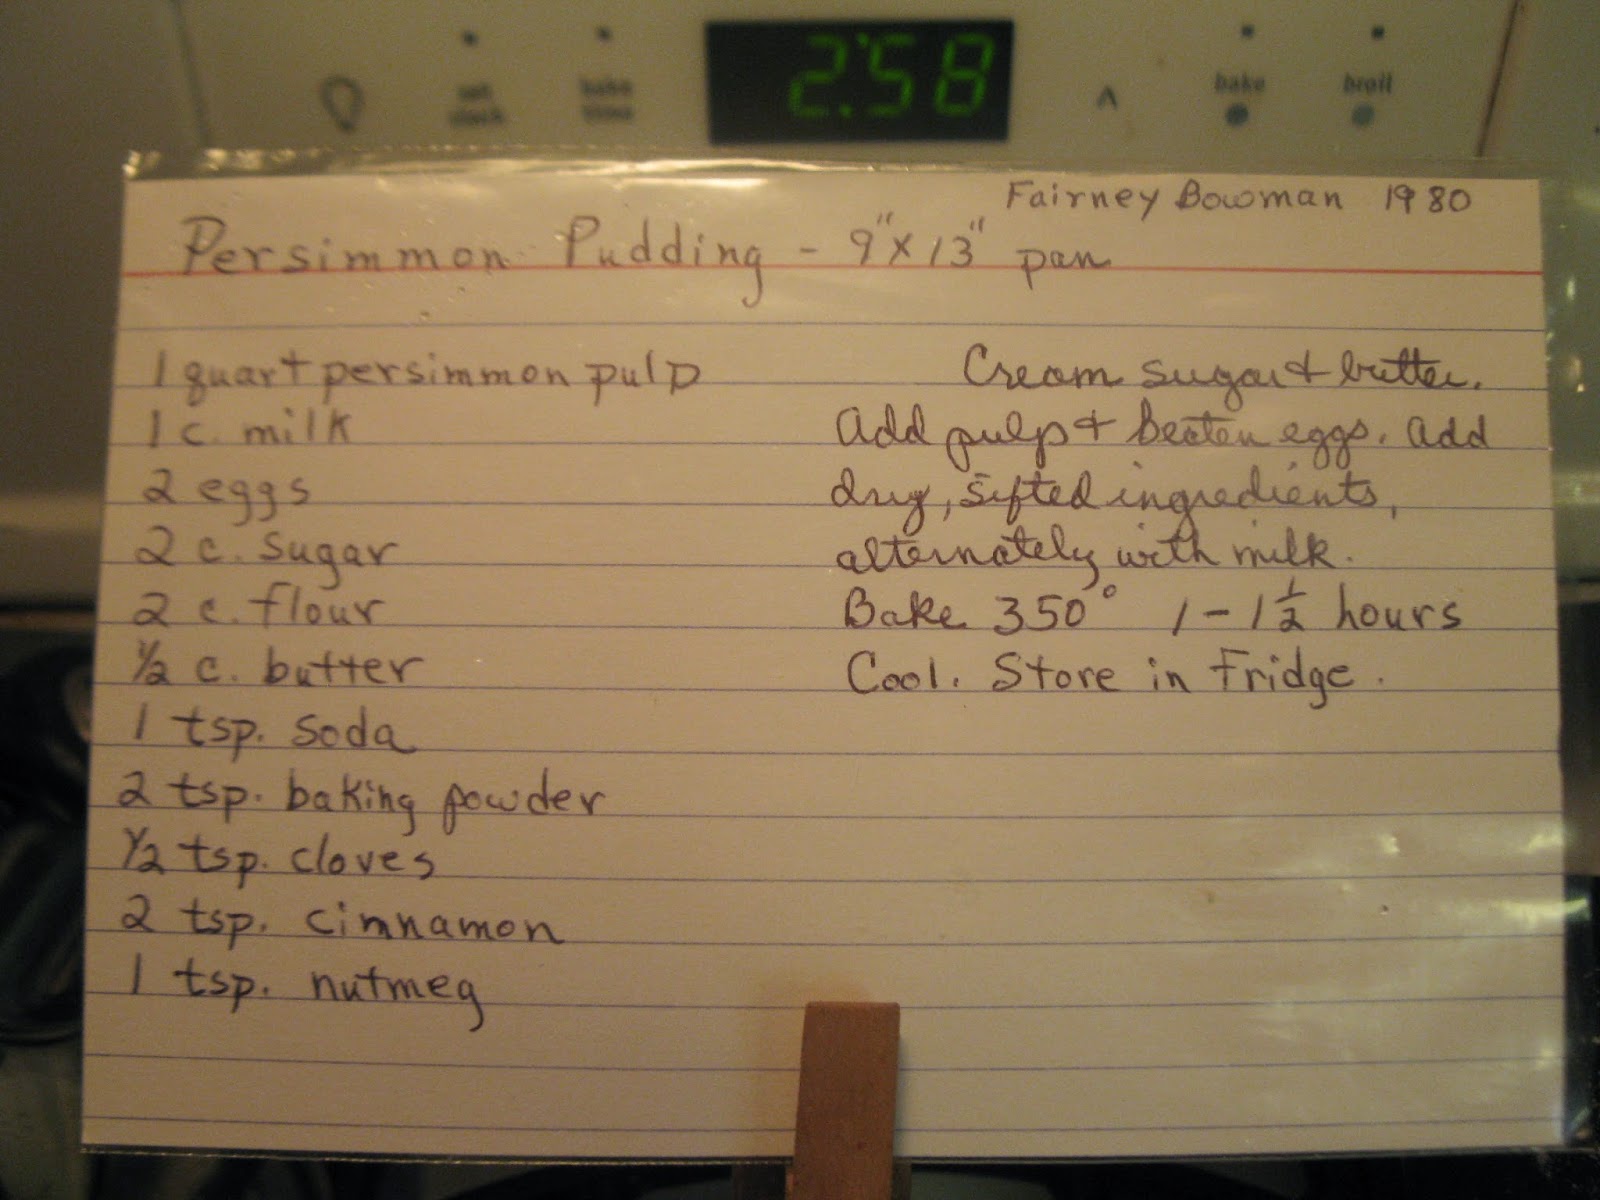 set clock
bake time
2:58
bake
broil
Fairney Bowman 1980
Persimmon Pudding - 9" x 13" pan
1 quart persimmon pulp
1 c. milk
2 eggs
2 c. sugar
2 c. flour
1/2 c. butter
1 tsp. soda
2 tsp. baking powder
1/2 tsp. cloves
2 tsp. cinnamon
1 tsp. nutmeg
Cream sugar & butter.
Add pulp & beaten eggs. Add
dry, sifted ingredients,
alternately with milk.
Bake 350° 1 - 1 1/2 hours
Cool. Store in Fridge.